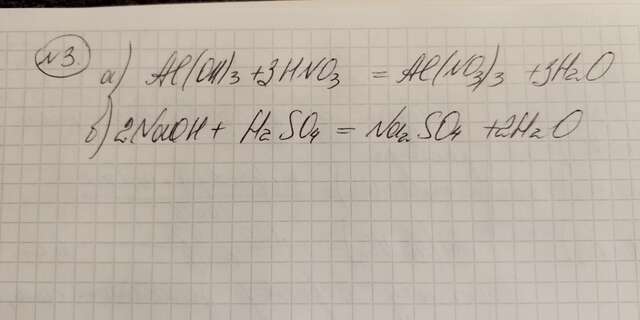 №3. а) Al(OH)3 + 3HNO3 = Al(NO3)3 + 3H2O
б) 2NaOH + H2SO4 = Na2SO4 + 2H2O